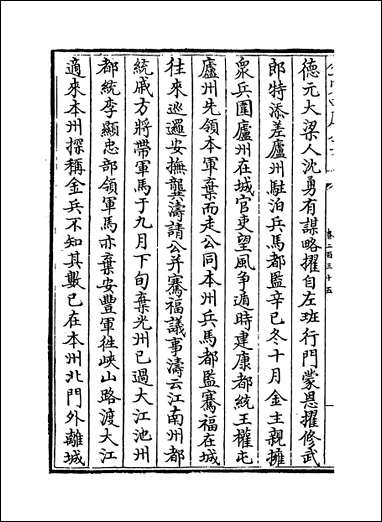 卷二百三十五
德元大梁人沈勇有謀略擢自左班行門蒙恩擢修武
郎特添差廬州駐泊兵馬都監辛巳冬十月金主親擁
衆兵圍廬州在城官吏望風争遁時建康都統王權屯
廬州先領本軍棄而走公同本州兵馬都監騫福在城
往來巡邏安撫龔濤請公并騫福議事濤云江南州都
統戚方將帶軍馬于九月下旬棄光州已過大江池州
都統李顯忠部領軍馬亦棄安豐軍徃峽山路渡大江
適來本州探稱金兵不知其數已在本州北門外離城